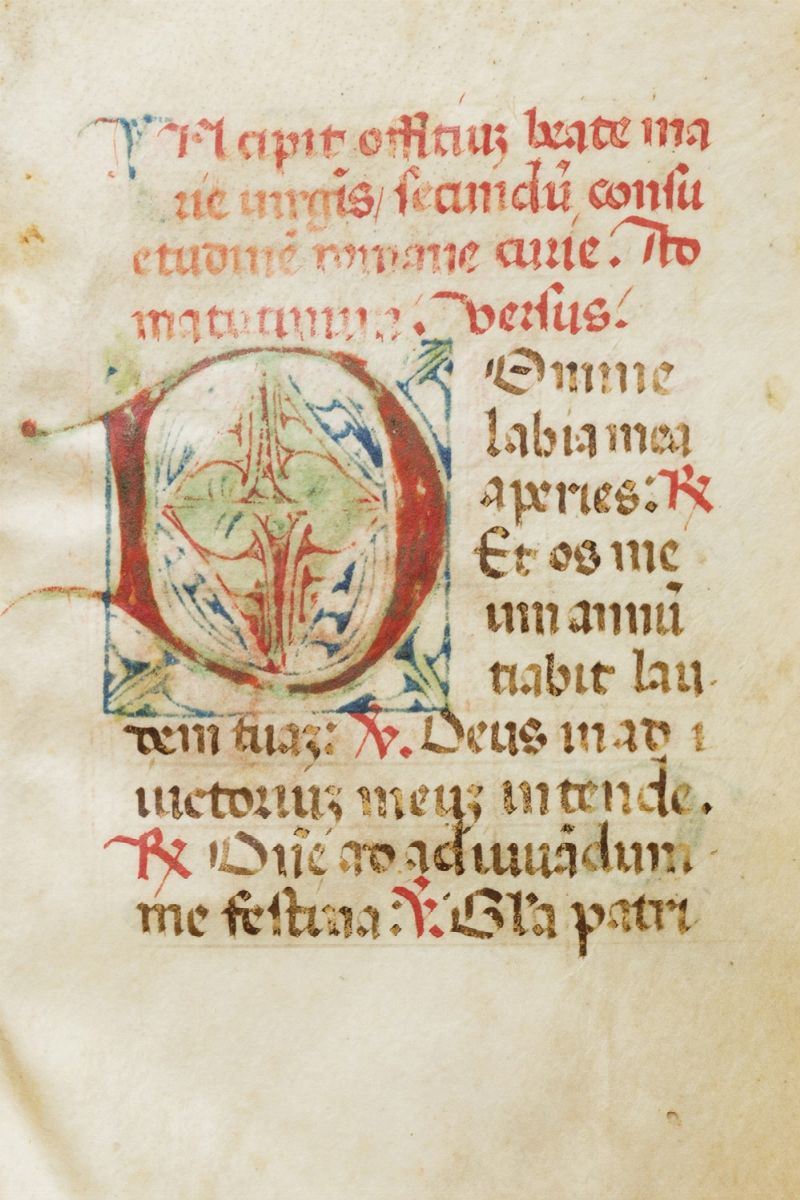 INcipit offitiuz beate ma
rie uirgīs, secundū consu
etudinē romane curie. Ad
matutinum. versus.
DOmine
labia mea
aperies: ℟
Et os me
um annū
tiabit lau
dem tuaz: ℣. Deus in ad i
uictoriuz meuz intende.
℟ Dn̄e ad adiuuādum
me festina: ℣. Gl'a patri